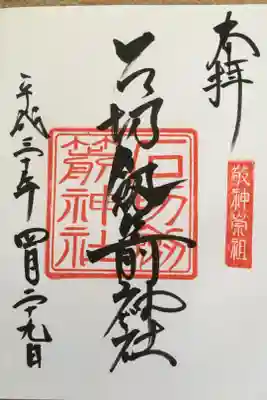 奉拝
敬神崇祖
石切劔箭神社
石切劔箭神社
平成三十年四月二十九日